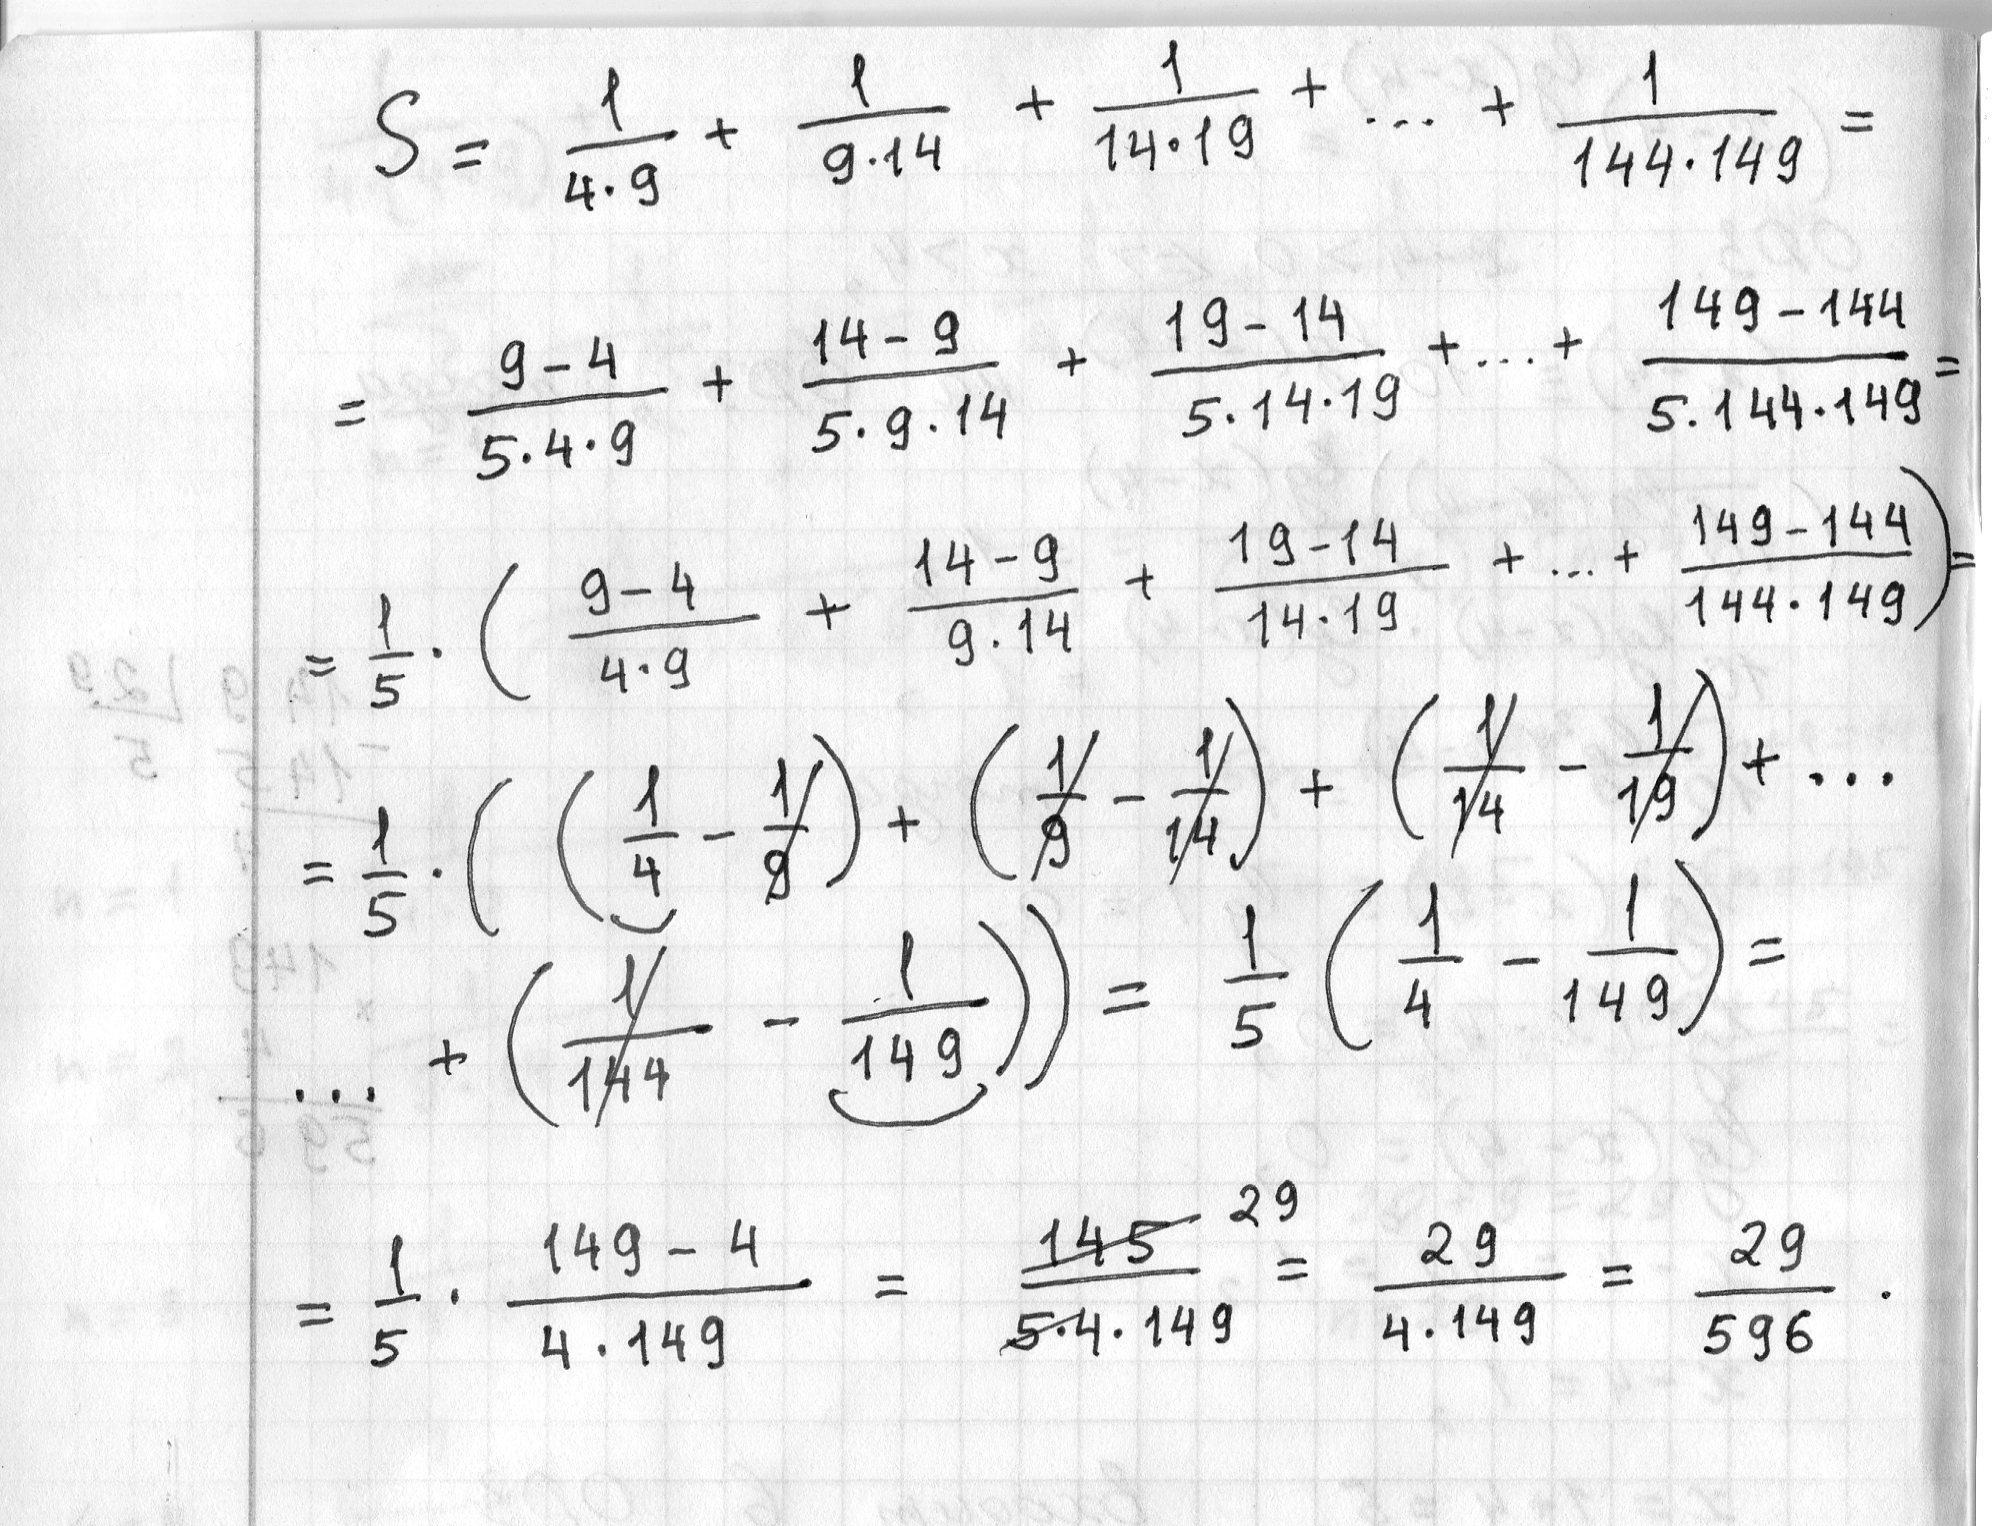 S = 1/(4·9) + 1/(9·14) + 1/(14·19) + ... + 1/(144·149) =
= (9-4)/(5·4·9) + (14-9)/(5·9·14) + (19-14)/(5·14·19) + ... + (149-144)/(5·144·149) =
= 1/5 · ( (9-4)/(4·9) + (14-9)/(9·14) + (19-14)/(14·19) + ... + (149-144)/(144·149) ) =
= 1/5 · ( ( 1/4 - 1/9 ) + ( 1/9 - 1/14 ) + ( 1/14 - 1/19 ) + ...
... + ( 1/144 - 1/149 ) ) = 1/5 ( 1/4 - 1/149 ) =
= 1/5 · (149-4)/(4·149) = 145 29/(5·4·149) = 29/(4·149) = 29/596 .